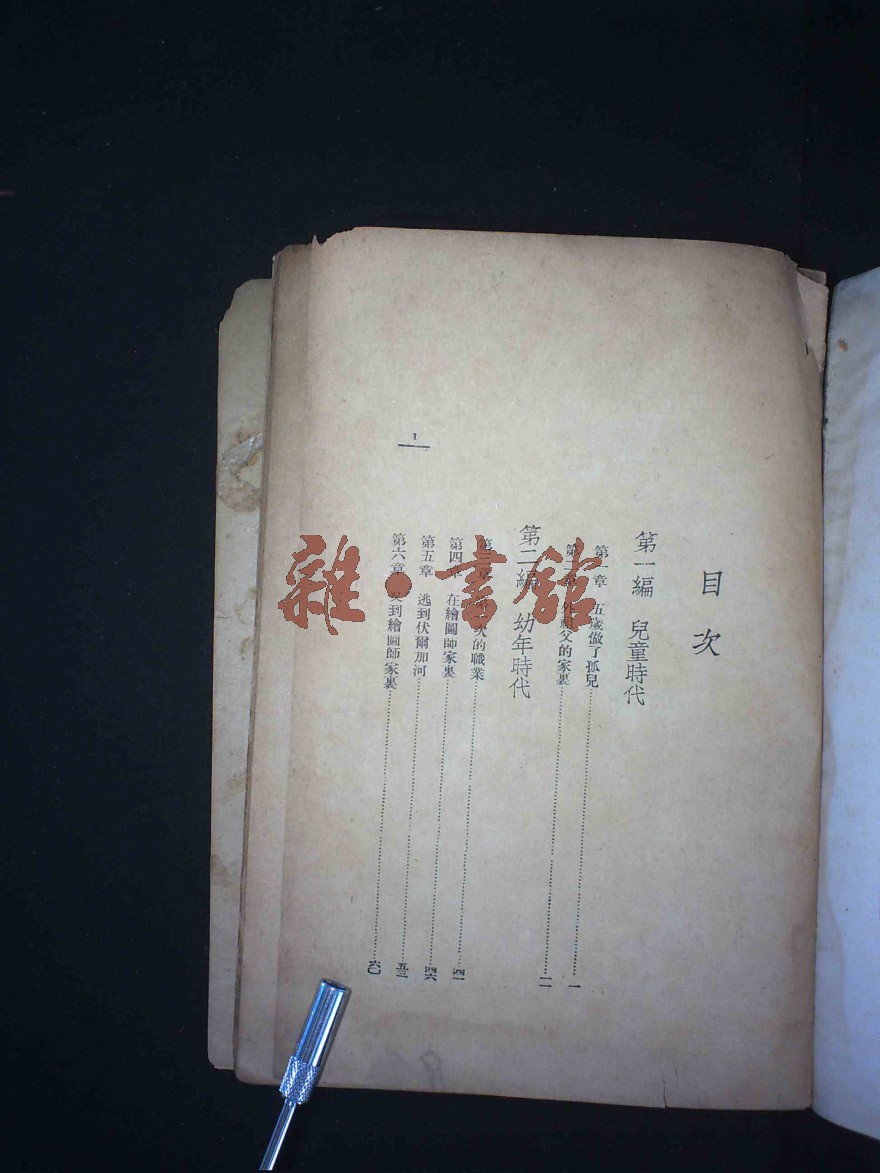 目次
第一編 兒童時代
第一章 五歲做了孤兒 一
第二章 外祖父的家裏 一一
第二編 幼年時代
第三章 第一次的職業 四一
第四章 在繪圖師家裏 四六
第五章 逃到伏爾加河 五三
第六章 又到繪圖師家裏 六〇
1
雜·書館